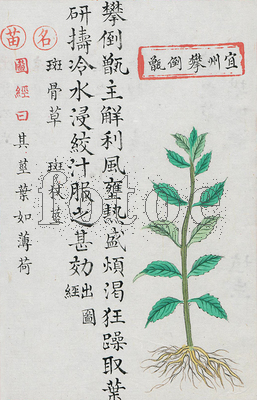 宜州攀倒甑
攀倒甑主解利風壅熱盛煩渴狂躁取葉
研擣冷水浸絞汁服之甚効出圖經
名
斑骨草 斑杖莖
苗
圖經曰其莖葉如薄荷